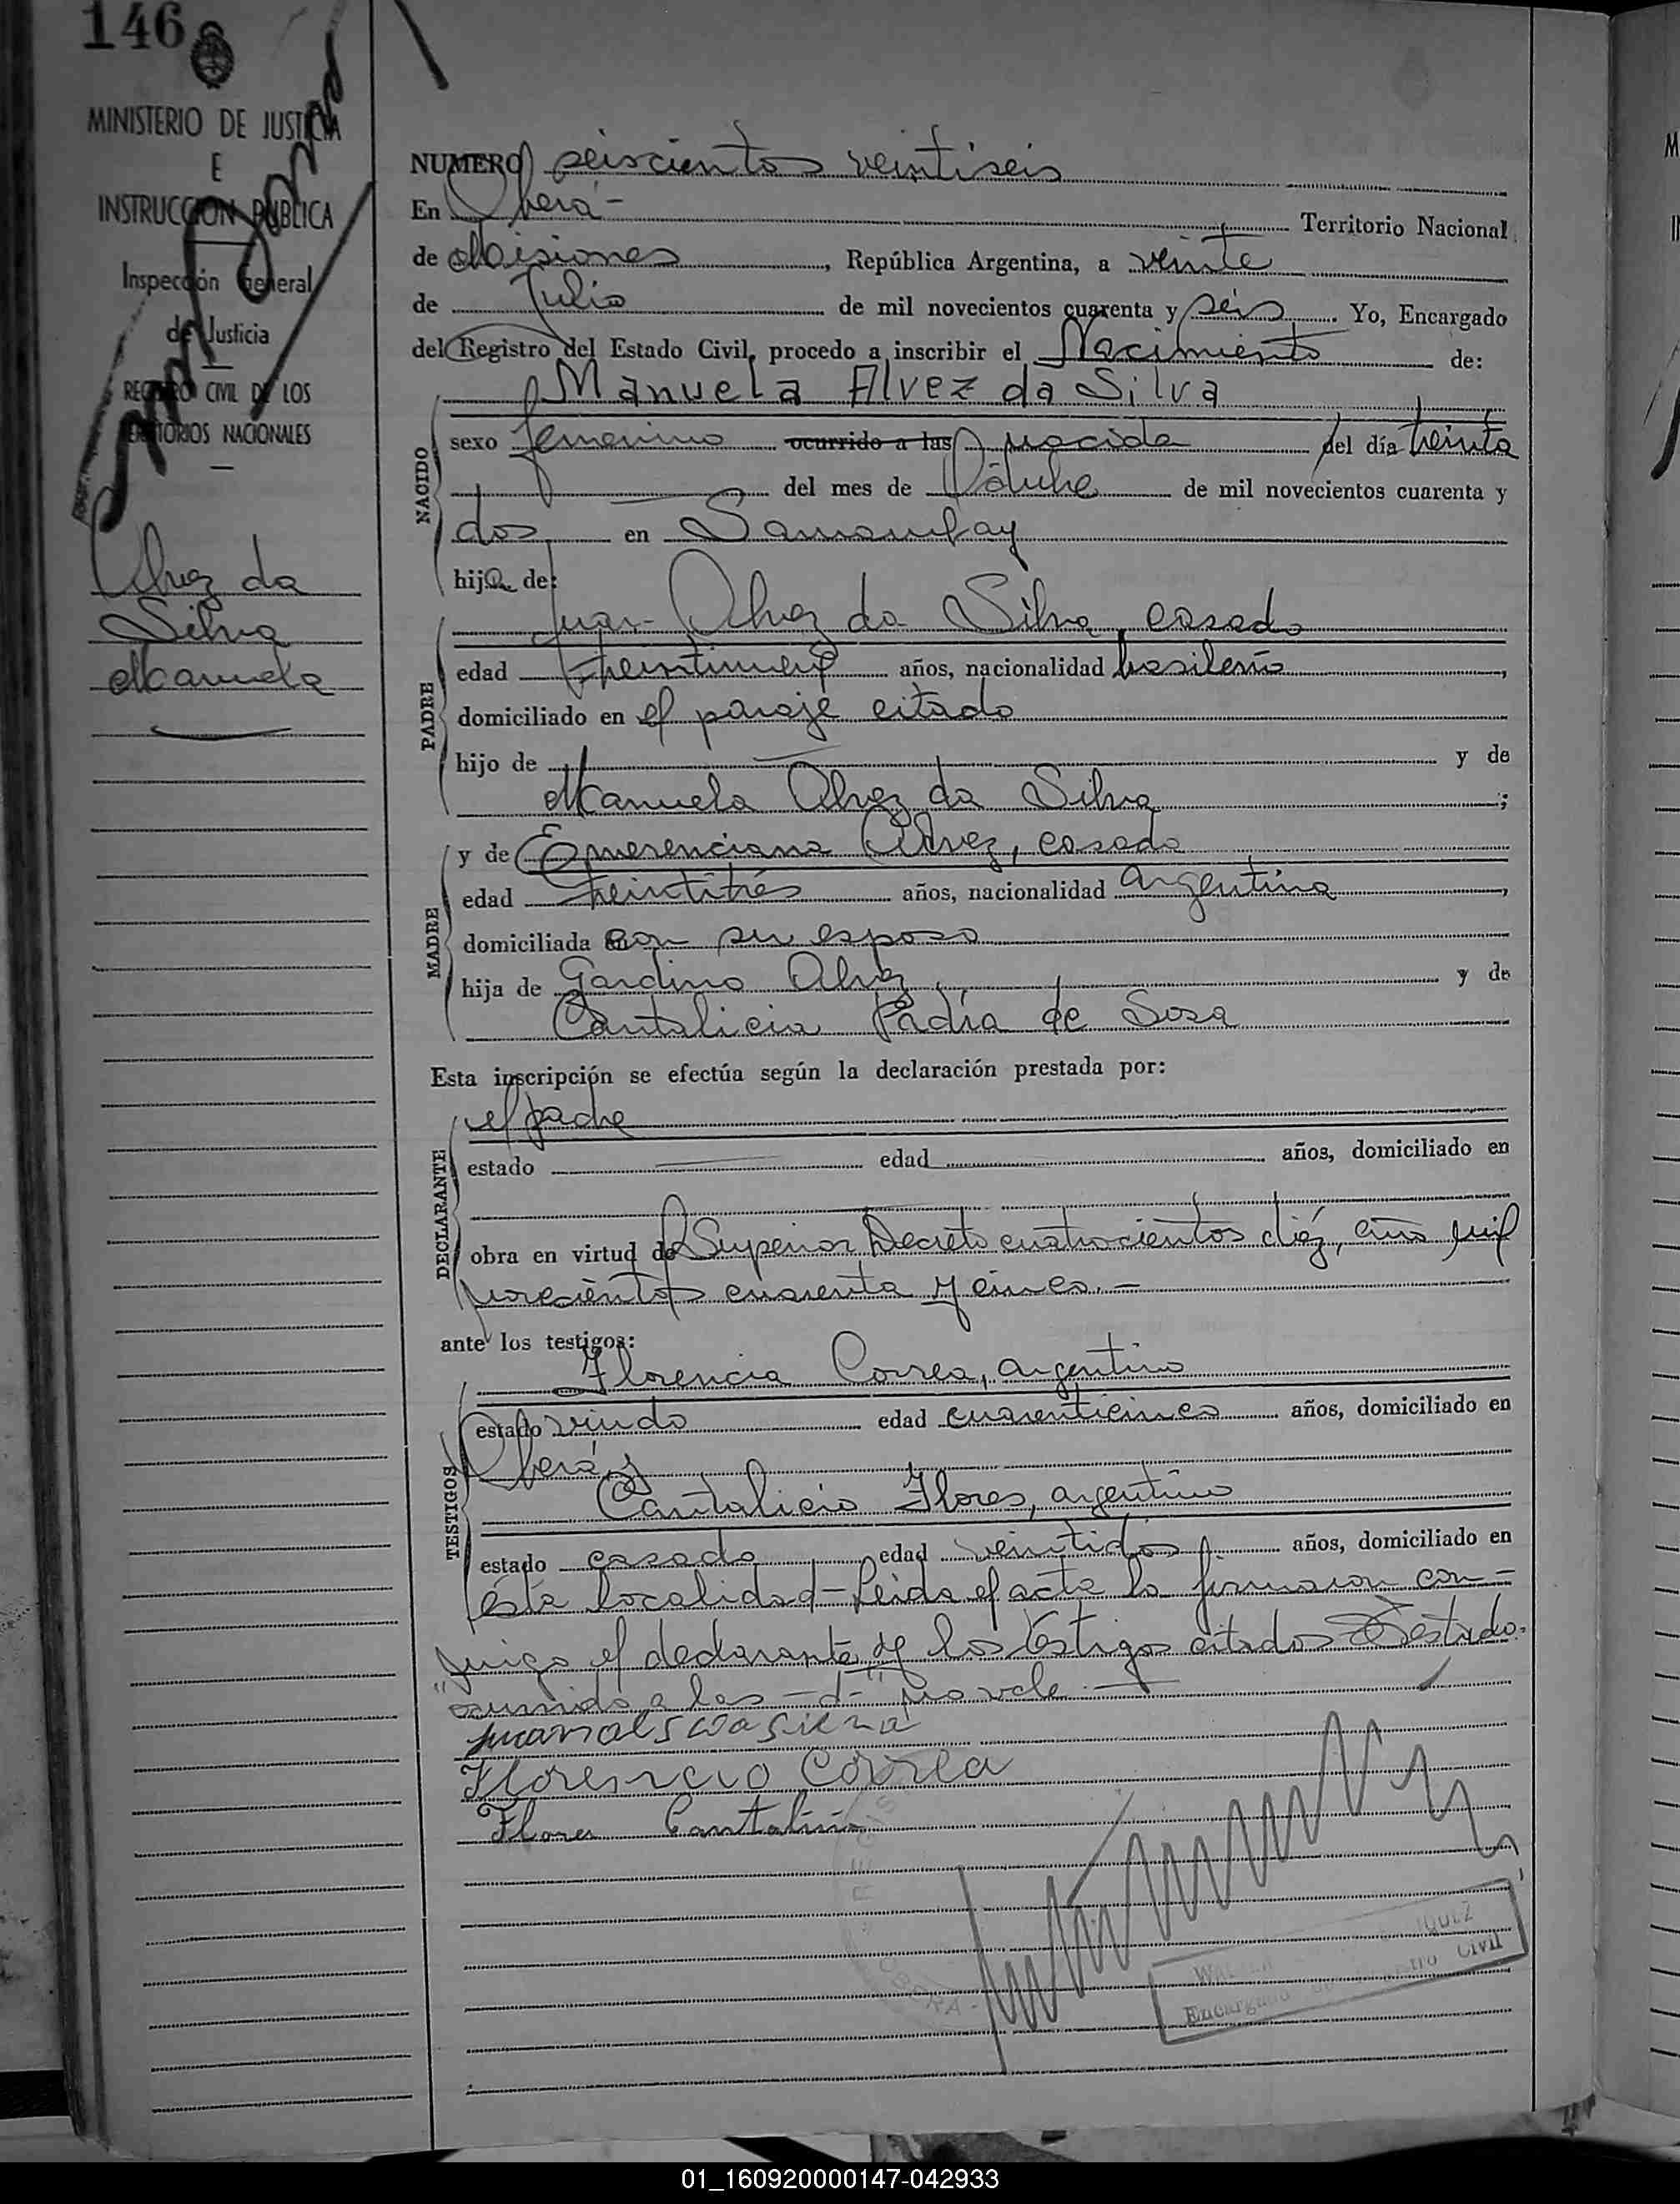 146
MINISTERIO DE JUSTICIA
E
INSTRUCCION PUBLICA
Inspección General
de Justicia
REGISTRO CIVIL DE LOS
TERRITORIOS NACIONALES
Alvez da
Silva
Manuela
NUMERO seiscientos veintiseis
En Oberá- Territorio Nacional
de Misiones, República Argentina, a veinte
de Julio de mil novecientos cuarenta y seis. Yo, Encargado
del Registro del Estado Civil, procedo a inscribir el Nacimiento de:
Manuela Alvez da Silva
NACIDO
sexo femenino ocurrido a las nacida del día treinta
del mes de Octubre de mil novecientos cuarenta y
dos en Samambay
hija de:
Juan Alvez da Silva, casado
PADRE
edad treintinueve años, nacionalidad brasileña,
domiciliado en el paraje citado
hijo de y de
Manuela Alvez da Silva;
y de Emerenciana Alvez, casada
MADRE
edad treintitrés años, nacionalidad argentina,
domiciliada con su esposo
hija de Gardino Alvez y de
Cantalicia Padia de Sosa
Esta inscripción se efectúa según la declaración prestada por:
el padre
DECLARANTE
estado edad años, domiciliado en
obra en virtud de Superior Decreto cuatrocientos diez, año mil
novecientos cuarenta y cinco.-
ante los testigos:
Florencia Correa, argentino
TESTIGOS
estado viudo edad cuarenticinco años, domiciliado en
Oberá y
Cantalicio Flores, argentino
estado casado edad veintidos años, domiciliado en
ésta localidad- Leida el acta la firmaron con-
migo el declarante y los testigos citados Testado:
"ocurrido a las -d-" no vale.-
Florencio Correa
Flores Cantalicio
Encargado Registro Civil
01_160920000147-042933